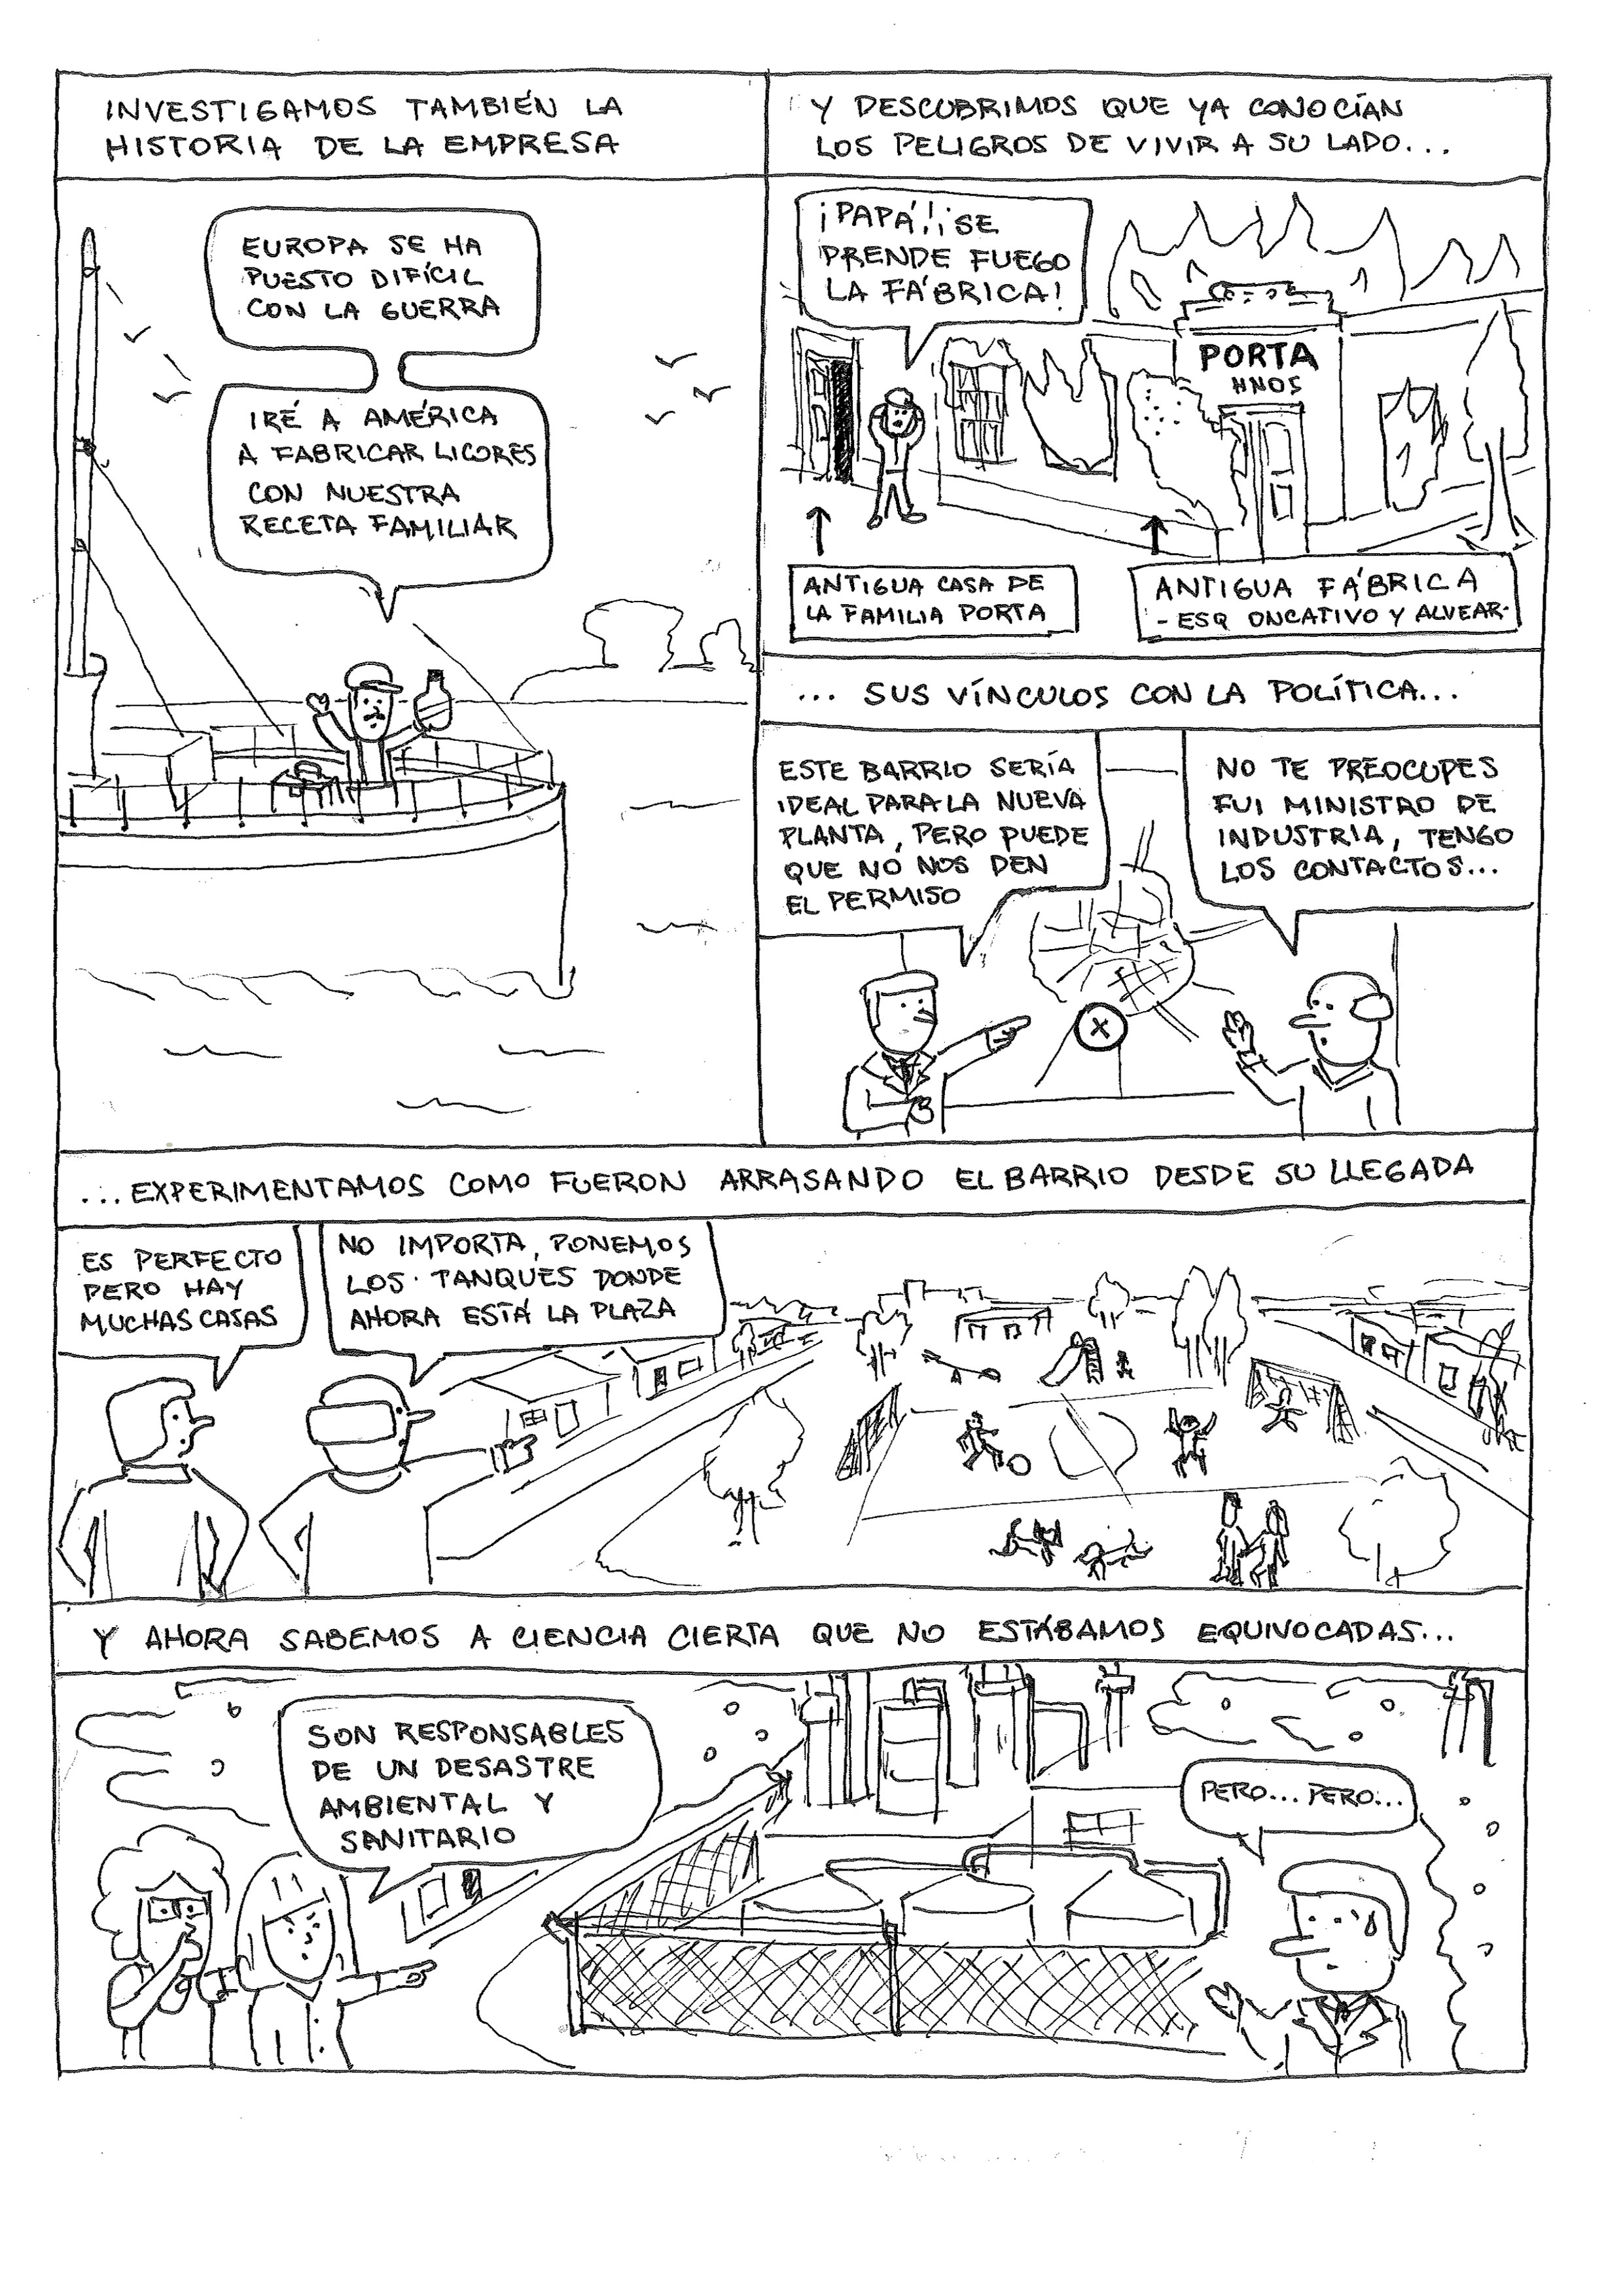 INVESTIGAMOS TAMBIÉN LA
HISTORIA DE LA EMPRESA
EUROPA SE HA
PUESTO DIFÍCIL
CON LA GUERRA
IRÉ A AMÉRICA
A FABRICAR LICORES
CON NUESTRA
RECETA FAMILIAR
Y DESCUBRIMOS QUE YA CONOCÍAN
LOS PELIGROS DE VIVIR A SU LADO...
¡PAPÁ!¡SE
PRENDE FUEGO
LA FÁBRICA!
PORTA
HNOS
ANTIGUA CASA DE
LA FAMILIA PORTA
ANTIGUA FÁBRICA
- ESQ ONCATIVO Y ALVEAR-
... SUS VÍNCULOS CON LA POLÍTICA...
ESTE BARRIO SERÍA
IDEAL PARA LA NUEVA
PLANTA, PERO PUEDE
QUE NO NOS DEN
EL PERMISO
NO TE PREOCUPES
FUI MINISTRO DE
INDUSTRIA, TENGO
LOS CONTACTOS...
...EXPERIMENTAMOS COMO FUERON ARRASANDO EL BARRIO DESDE SU LLEGADA
ES PERFECTO
PERO HAY
MUCHAS CASAS
NO IMPORTA, PONEMOS
LOS TANQUES DONDE
AHORA ESTÁ LA PLAZA
Y AHORA SABEMOS A CIENCIA CIERTA QUE NO ESTÁBAMOS EQUIVOCADAS...
SON RESPONSABLES
DE UN DESASTRE
AMBIENTAL Y
SANITARIO
PERO... PERO...